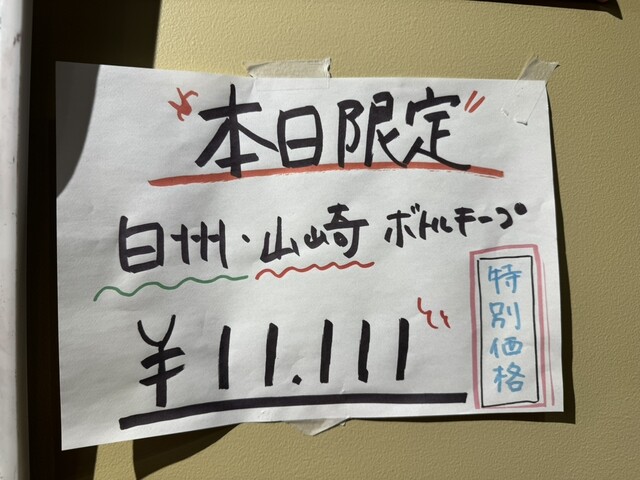 "本日限定"
白州・山崎 ボトルキープ
¥11.111
特別価格